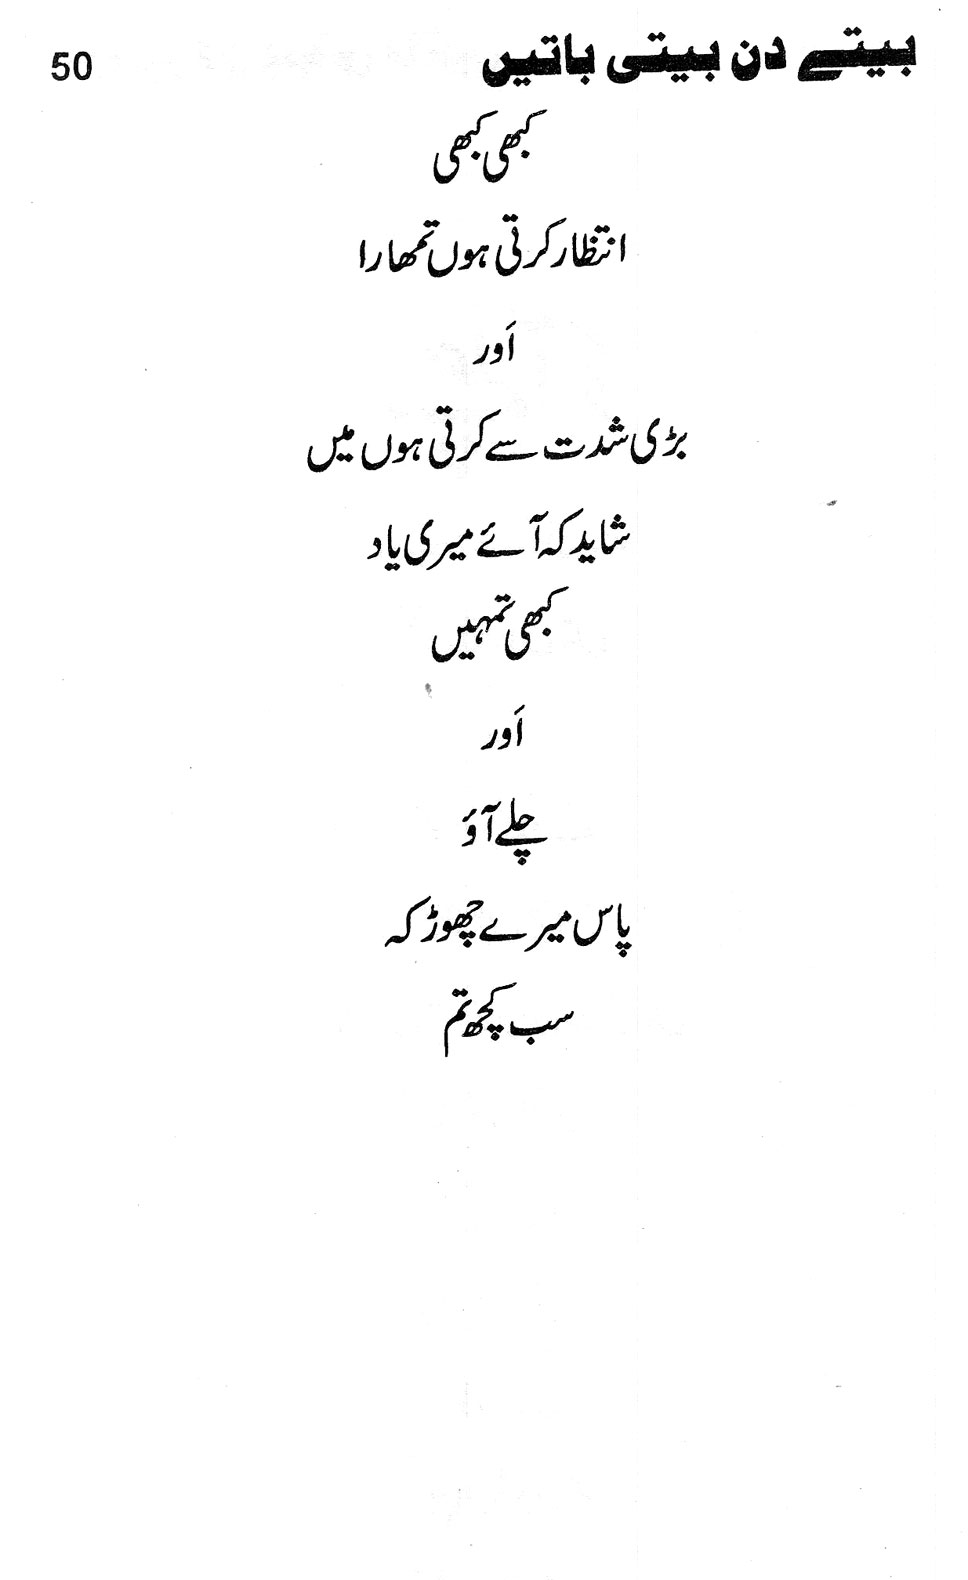 بیتے دن بیتی باتیں 50
کبھی کبھی
انتظار کرتی ہوں تمھارا
اَور
بڑی شدت سے کرتی ہوں میں
شاید کہ آئے میری یاد
کبھی تمہیں
اَور
چلے آؤ
پاس میرے چھوڑ کہ
سب کچھ تم